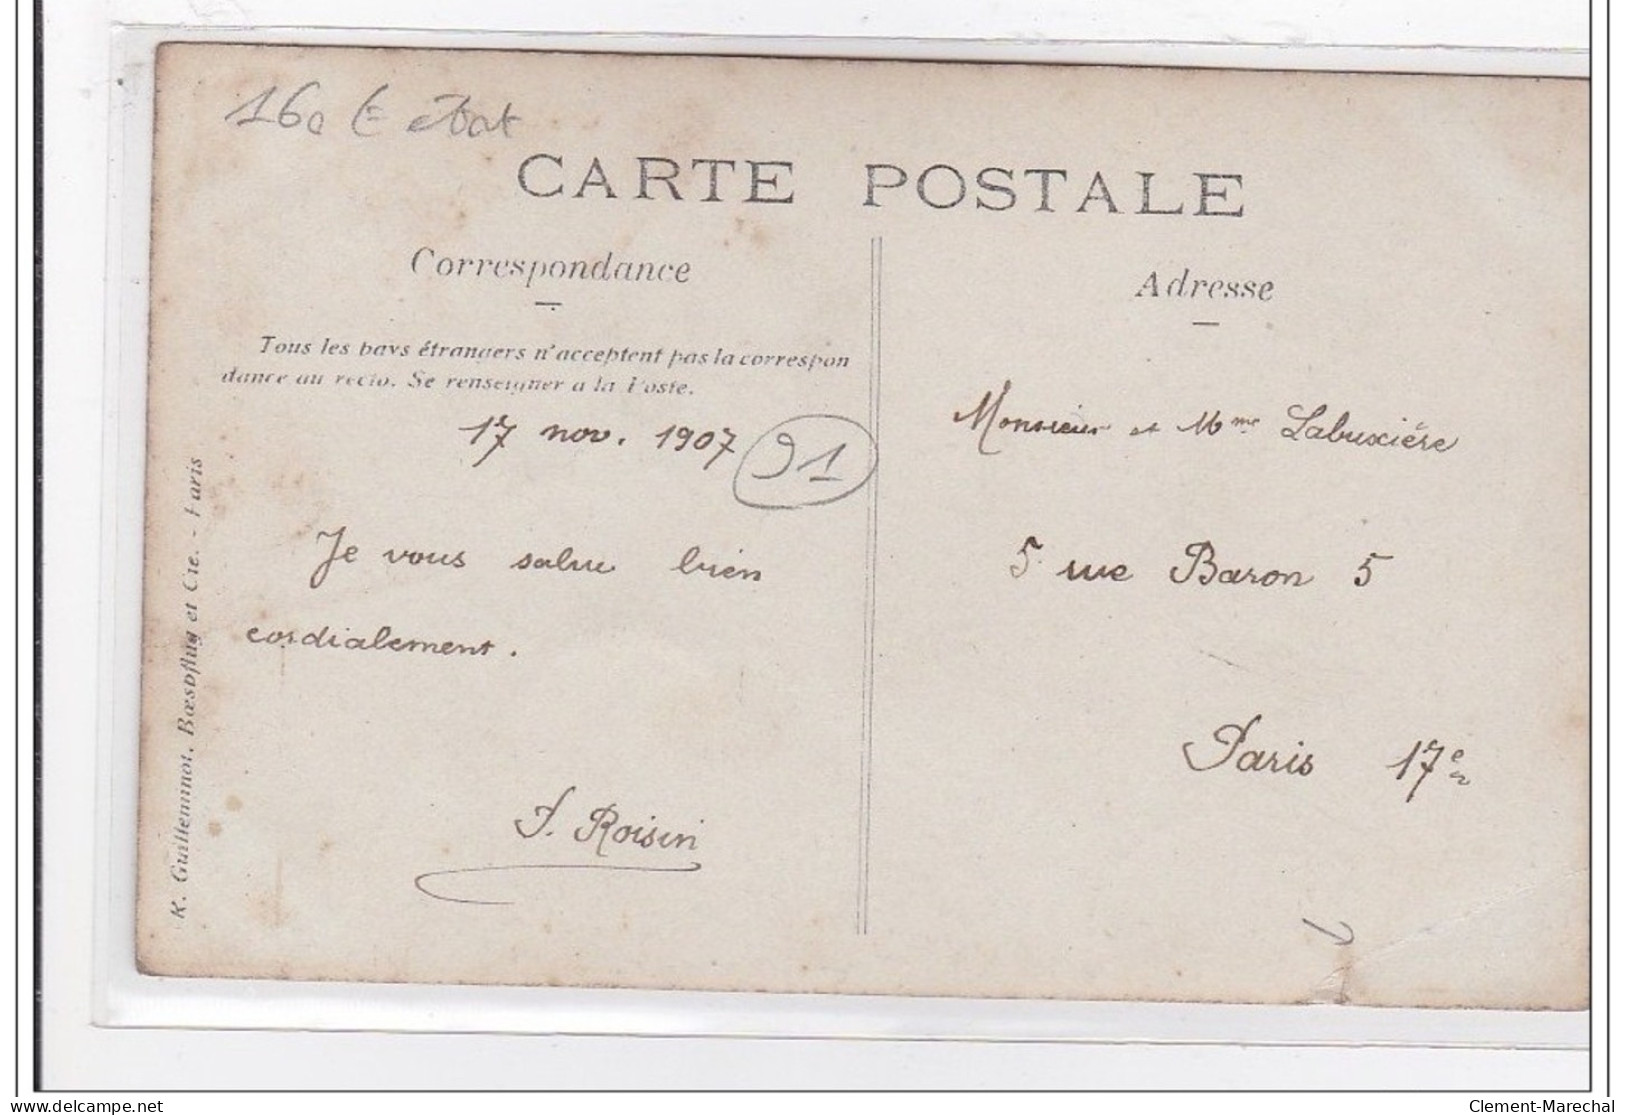 160 € état
CARTE POSTALE
Correspondance
Tous les pays étrangers n'acceptent pas la correspon
dance au recto. Se renseigner à la Poste.
17 nov. 1907
91
Je vous salue bien
cordialement.
J. Roisin
R. Guilleminot, Bœspflug et Cie. - Paris
Adresse
Monsieur et Mme Labuxière
5 rue Baron 5
Paris 17e
delcampe.net
Clement-Marechal